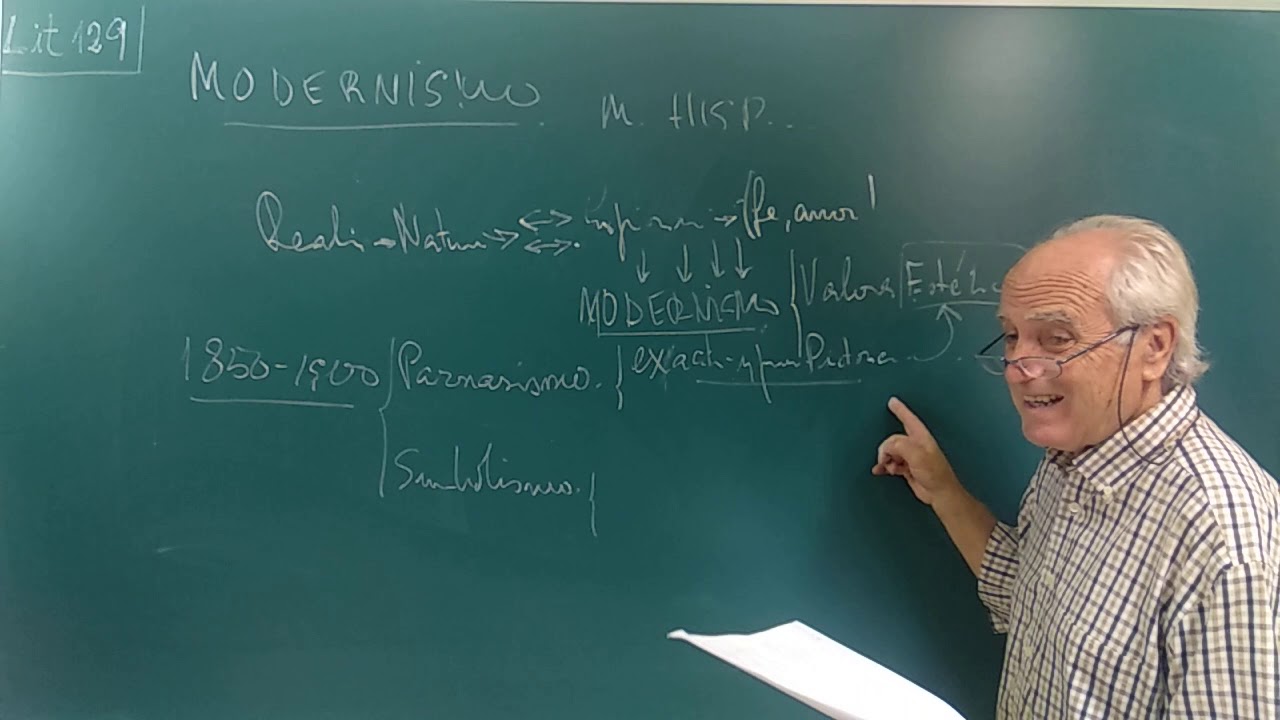 Lit 129
MODERNISMO
M. HISP...
Realis → Natur
fe, amor
MODERNISMO { Valores Estétic
1850-1900 { Parnasismo. {
Simbolismo. {